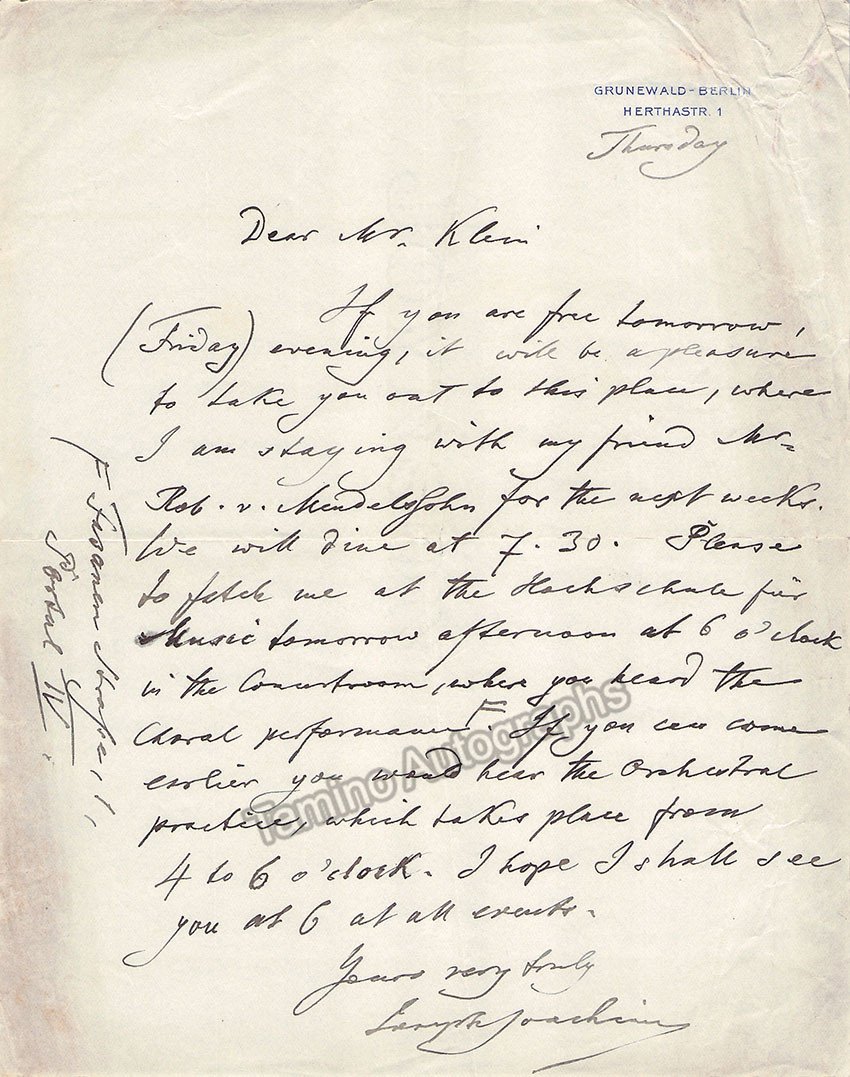 GRUNEWALD-BERLIN
HERTHASTR. 1
Thursday
Dear Mr. Klein
If you are free tomorrow,
(Friday) evening, it will be a pleasure
to take you out to this place, where
I am staying with my friend Mr.
Rob. v. Mendelssohn for the next weeks.
We will dine at 7.30. Please
to fetch me at the Hochschule für
Music tomorrow afternoon at 6 o'clock
in the Concertroom, where you heard the
Choral performance F. If you can come
earlier you would hear the Orchestral
practice, which takes place from
4 to 6 o'clock. I hope I shall see
you at 6 at all events.
Yours very truly
Joseph Joachim
F Fasanen Strasse, 1,
Portal IV.
Tamino Autographs